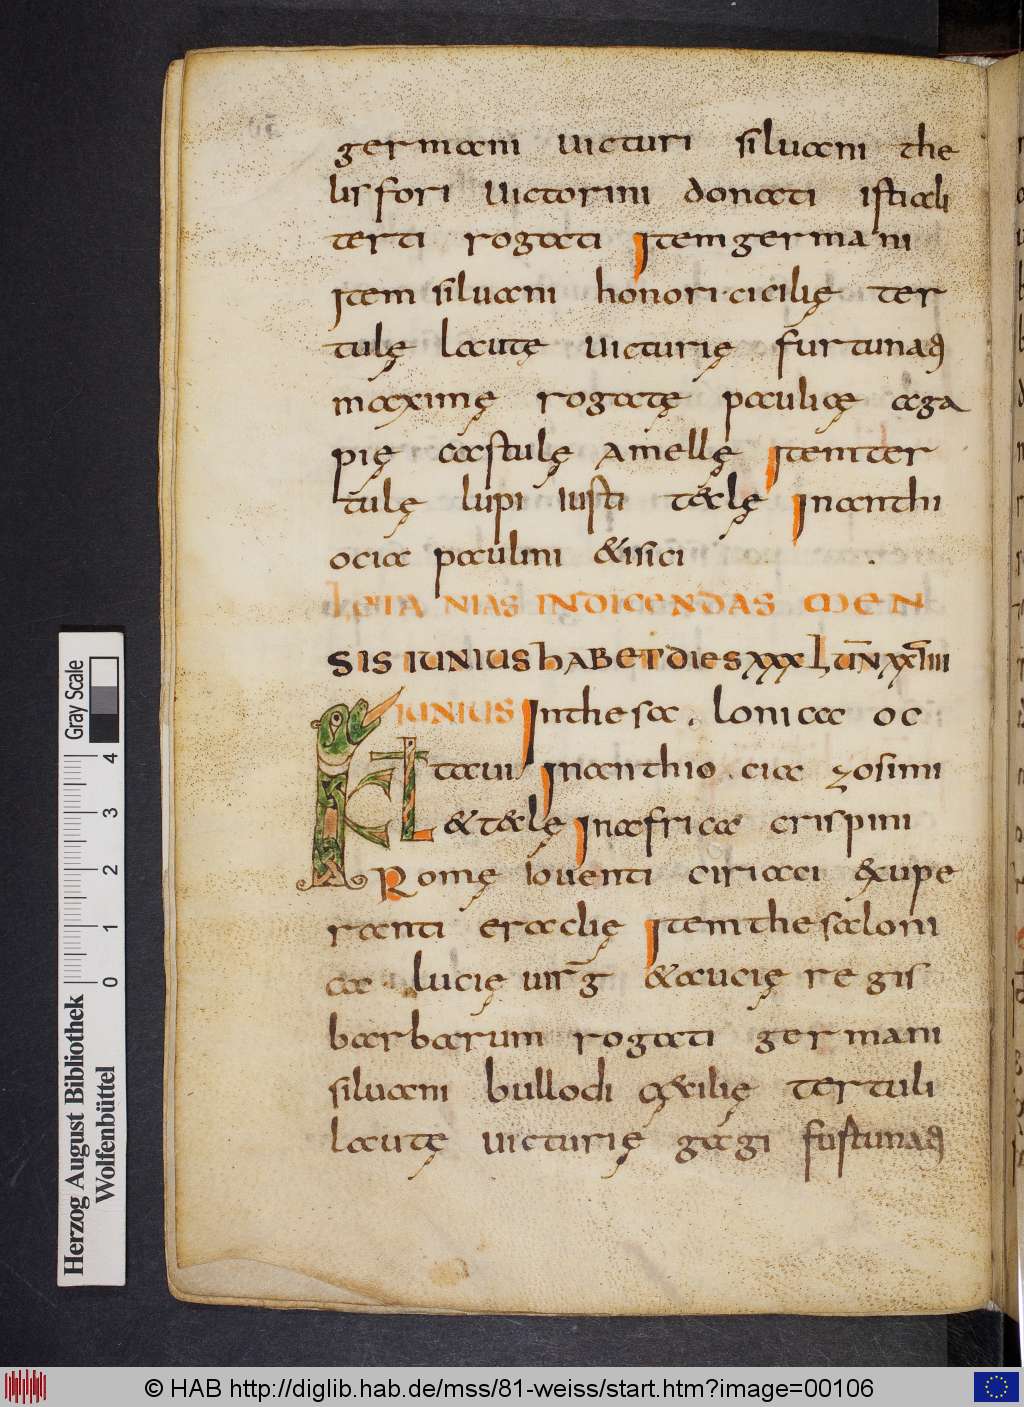 germani uicturi siluani the
lisfori uictorini donati istiali
terti rogati Item germani
Item siluani honori·cicilię ter
tulę lautę uicturię furtunaq
maximę rogatę pauliaę aga
pię castulę amellę Item ter
tulę lupi iusti t&lę In anthi
ocia paulini &isici
Letanias indicendas MEN
SIS IUNIUS hABET DIES XXX LUN̄ XXVIIII
KL IUNIUS In thesa lonica oc
taui In anthio cia zosimi
&t&lę In africa crispini
Romę iouenti ciriaci &xupe
ranti eraclię Item thesaloni
ca lucię uirg̅ &aucię regis
barbarum rogati germani
siluani bullodi q&ilię tertuli
lautę uicturię gagi fustunaq
Gray Scale
4 3 2 1 0
Herzog August Bibliothek
Wolfenbüttel
© HAB http://diglib.hab.de/mss/81-weiss/start.htm?image=00106